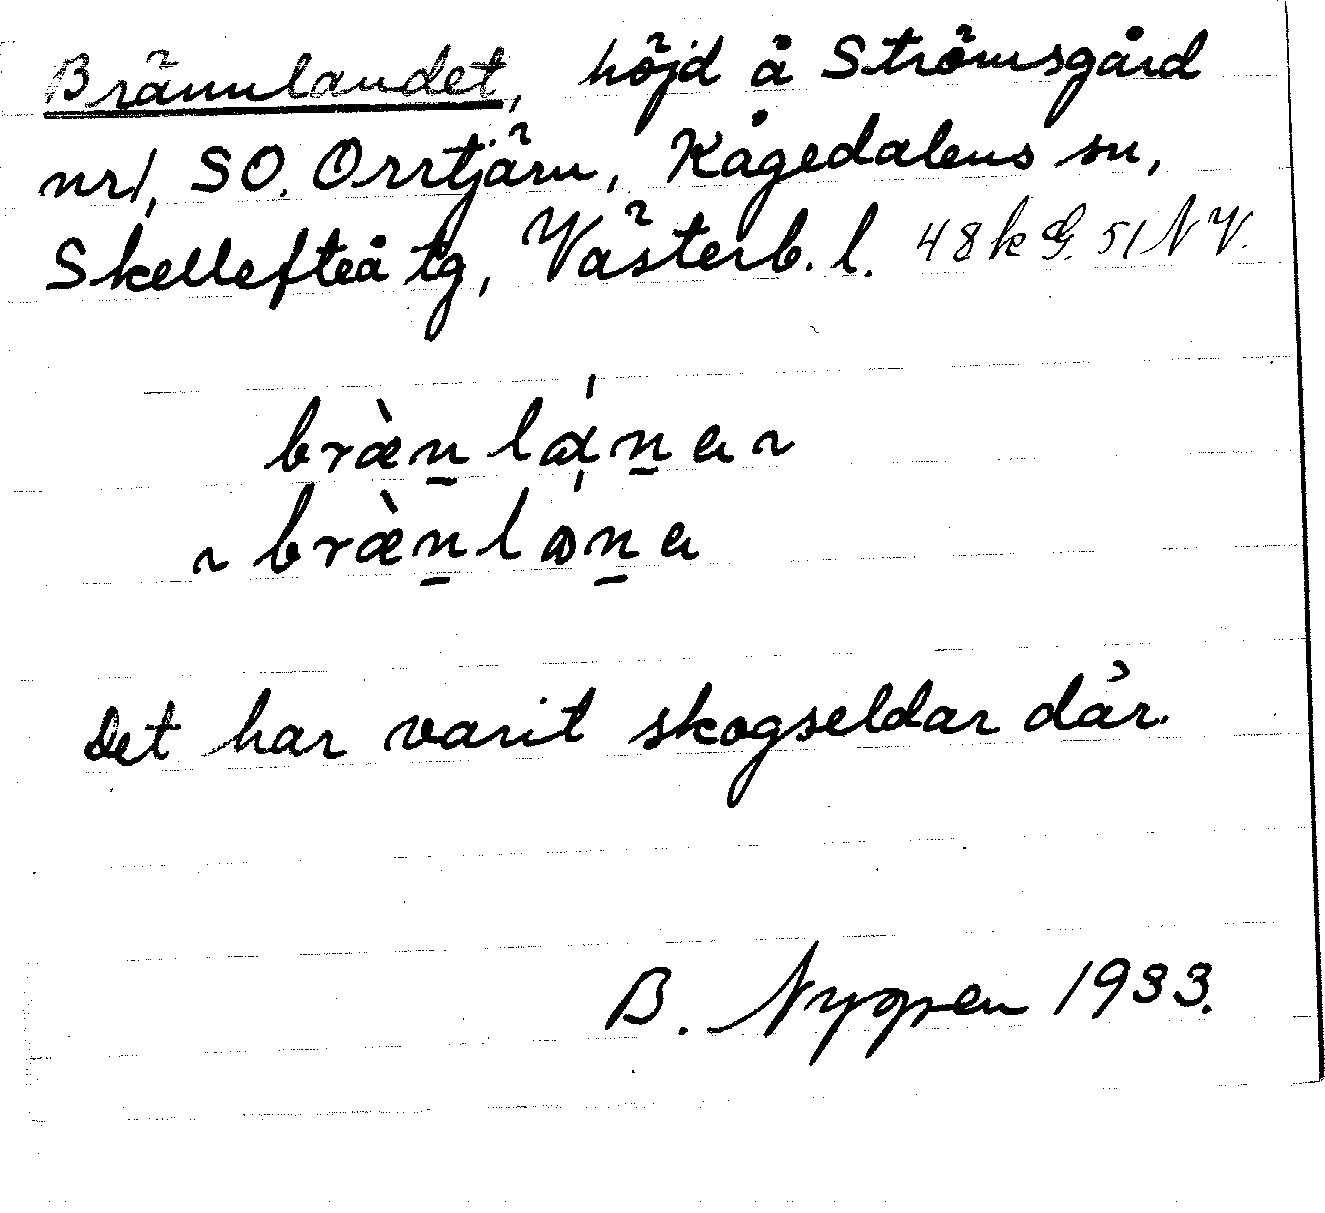 Brännlandet, höjd å Strömsgård
nr 1, SO. Orrtjärn, Kågedalens sn,
Skellefteå tg, Västerb. l. 48k G. 51 NV.
bræ̀n̲lán̲a ~
~ bræ̀n̲lón̲a
Det har varit skogseldar där.
B. Nygren 1933.